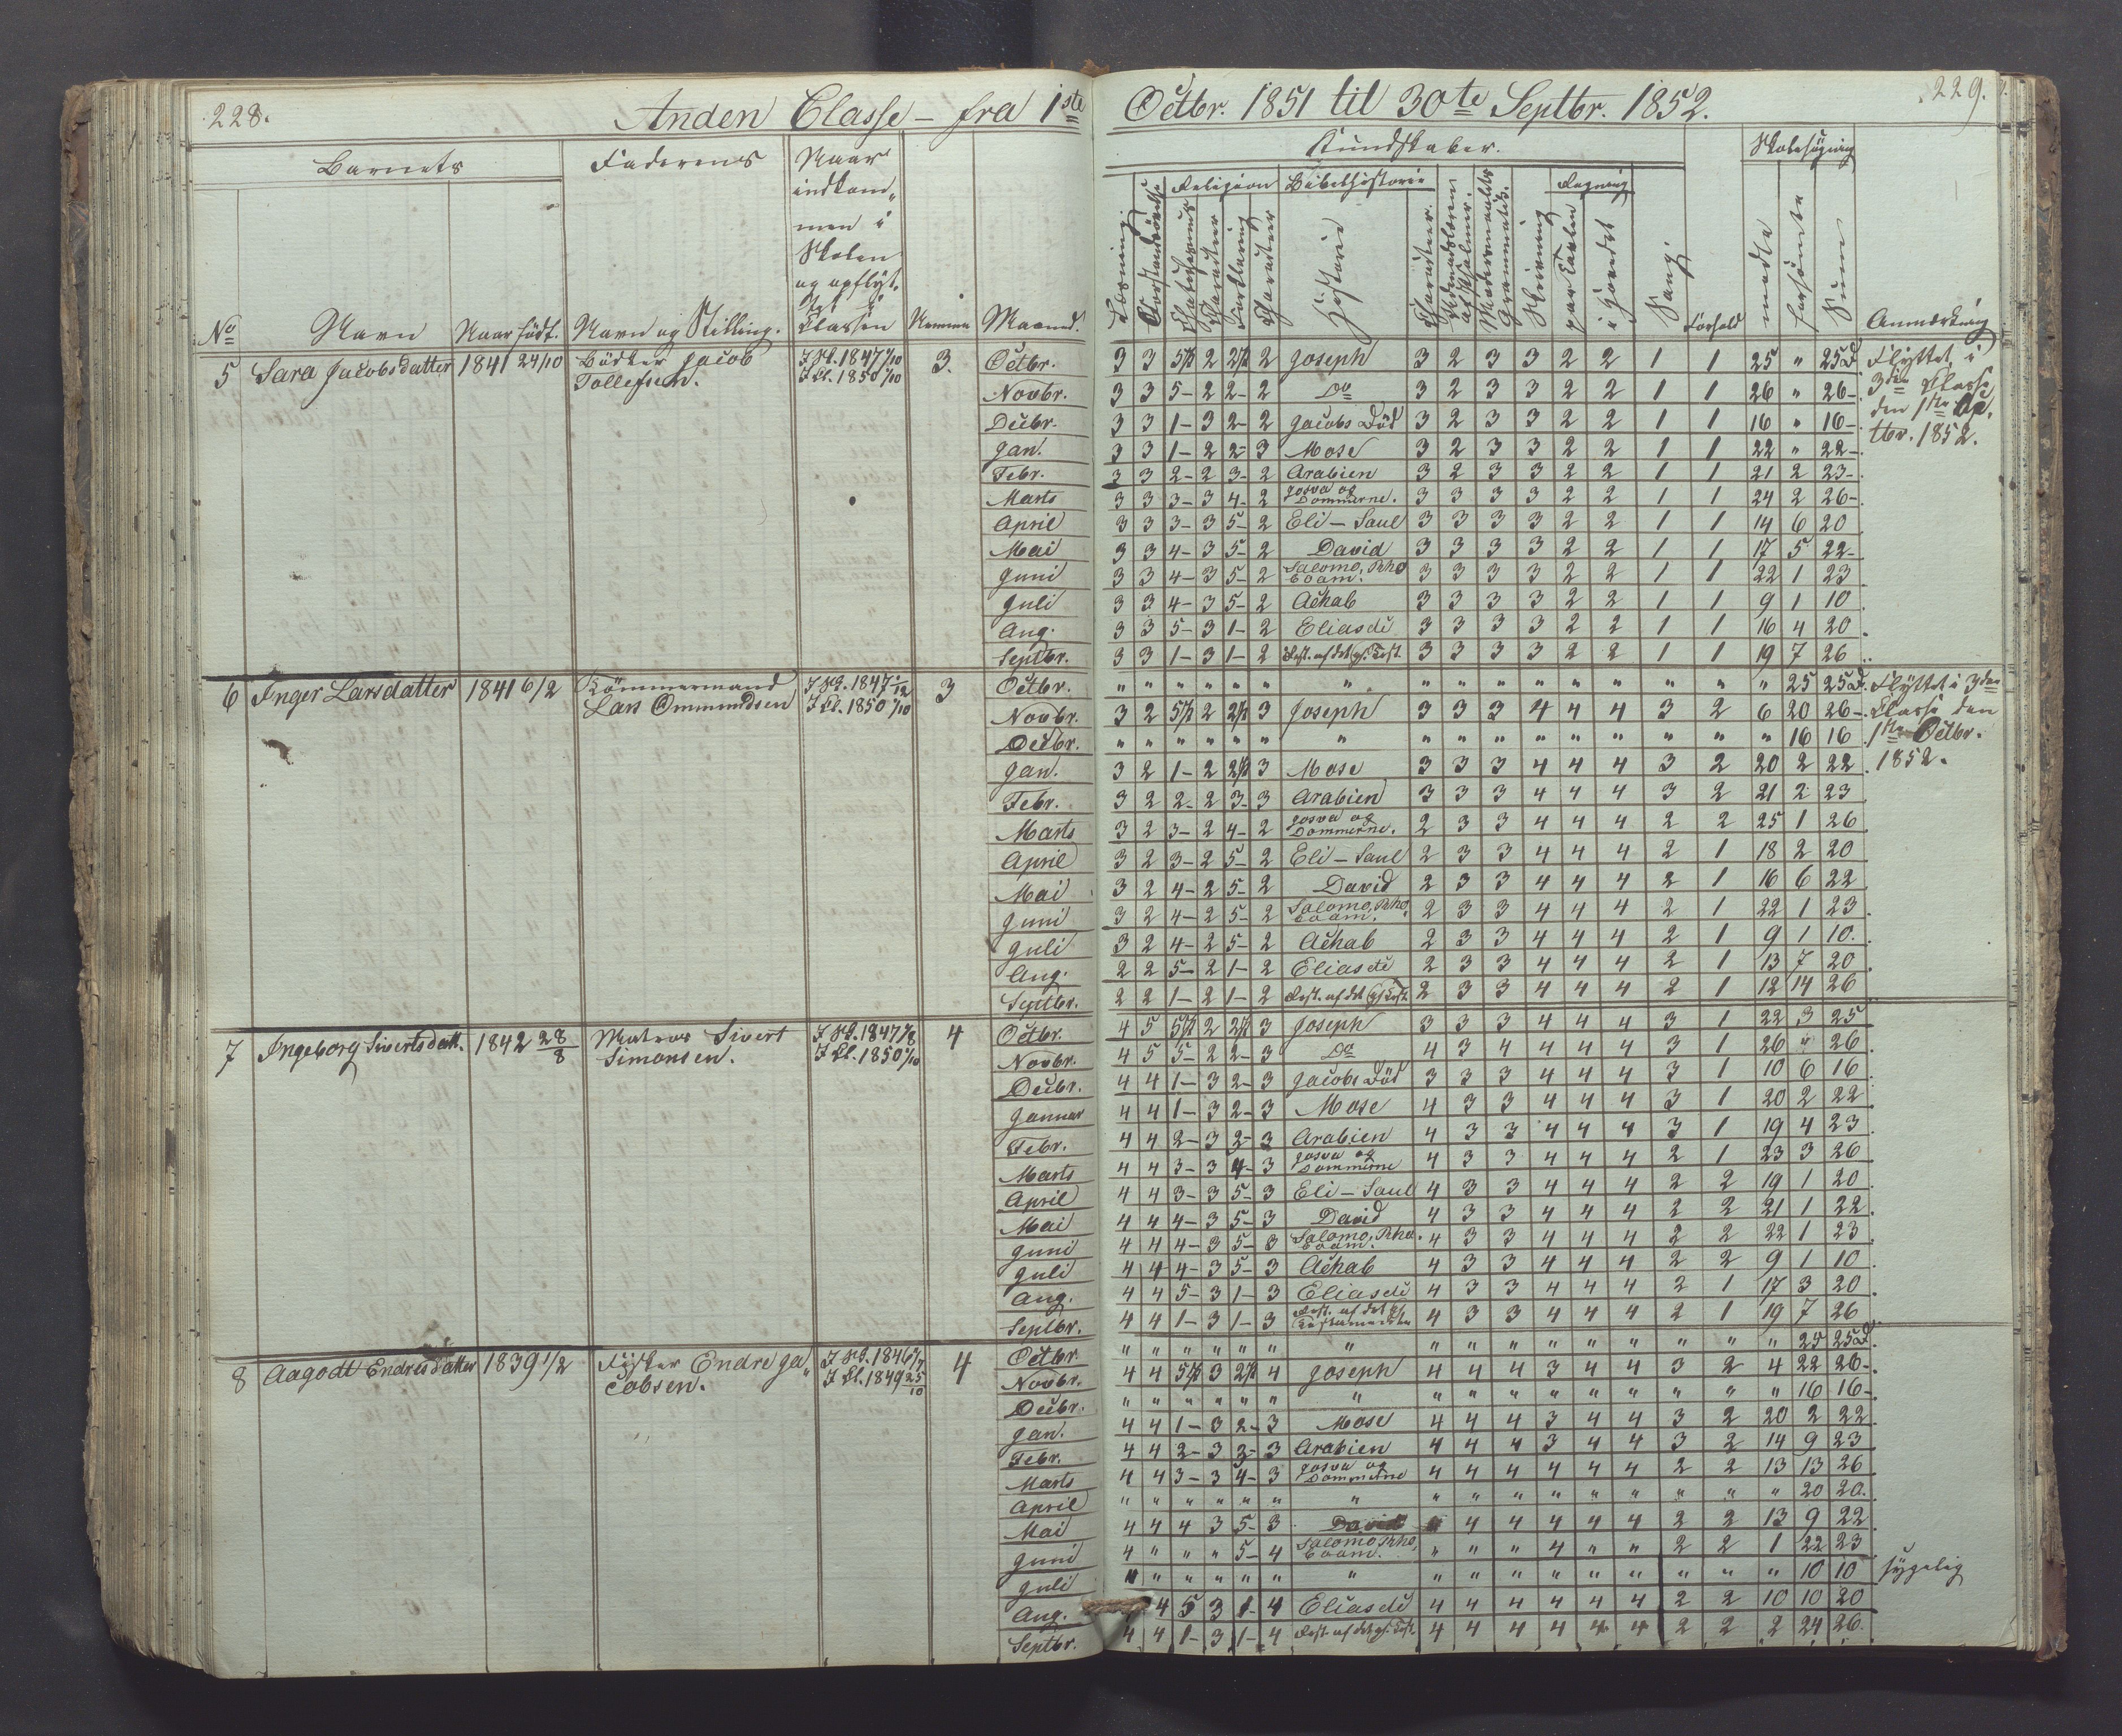 228.
Anden Classe – fra 1ste
Octbr. 1851 til 30te Septbr. 1852.
229.
Barnets
Faderens
Naar indkommen i Skolen og opflyt. i Classen
Kundskaber.
Skolesøgning
Religion
Bibelhistorie
Regning
No
Navn
Naar født.
Navn og Stilling.
Nummer
Maaned.
Læsning.
Historie
Skrivning
paa Tavlen
i Hovedet
Sang.
Forhold
mødte
forsømte
Sum
Anmærkning
5 Sara Jacobsdatter 1841 24/10 Bødker Jacob Tollefsen. I Sk. 1847 I Cl. 1850 3.
Octbr. 3 3 5 2 2 2 Joseph 3 2 3 3 2 2 1 1 25 " 25 D.
Novbr. 3 3 5- 2 2- 2 Do 3 2 3 3 2 2 1 1 26 " 26-
Decbr. 3 3 1- 3 2- 2 Jacobs Död 3 2 3 3 2 2 1 1 16 " 16-
Jan. 3 3 1- 2 2- 3 Mose 3 2 3 3 2 2 1 1 22 " 22-
Febr. 3 3 2- 2 3- 2 Arabien 3 2 3 3 2 2 1 1 21 2 23-
Marts 3 3 3- 3 4- 2 Josva og Dommerne. 3 3 3 3 2 2 1 1 24 2 26-
April 3 3 3- 3 5- 2 Eli – Saul 3 3 3 3 2 2 1 1 14 6 20
Mai 3 3 4- 3 5- 2 David 3 3 3 3 2 2 1 1 17 5 22-
Juni 3 3 4- 3 5- 2 Salomo, Rhoboam. 3 3 3 3 2 2 1 1 22 1 23
Juli 3 3 4- 3 5- 2 Achab 3 3 3 3 2 2 1 1 9 1 10
Aug. 3 3 5- 3 1- 2 Elias etc 3 3 3 3 2 2 1 1 16 4 20
Septbr. 3 3 1- 3 1- 2 Rest. af det gl. Test. 3 3 3 3 2 2 1 1 19 7 26
Flyttet i 3die Classe den 1ste Octbr. 1852.
6 Inger Larsdatter 1841 6/2 Tömmermand Lars Ommundsen I Sk. 1847 I Cl. 1850 3
Octbr. " " " " " " " " " " " " " " " " 25 25 D.
Novbr. 3 2 5 2 2 3 Joseph 3 3 3 4 4 4 3 2 6 20 26-
Decbr. " " " " " " " " " " " " " " " " 16 16
Jan. 3 2 1- 2 2 3 Mose 3 3 3 4 4 4 3 2 20 2 22
Febr. 3 2 2- 2 3- 3 Arabien 3 3 3 4 4 4 3 2 21 2 23
Marts 3 2 3- 2 4- 2 Josva og Dommerne. 2 3 3 4 4 4 2 2 25 1 26
April 3 2 3- 2 5- 2 Eli – Saul 2 3 3 4 4 4 2 1 18 2 20
Mai 3 2 4- 2 5- 2 David 2 3 3 4 4 4 2 1 16 6 22
Juni 3 2 4- 2 5- 2 Salomo, Rhoboam. 2 3 3 4 4 4 2 1 22 1 23
Juli 3 2 4- 2 5- 2 Achab 2 3 3 4 4 4 2 1 9 1 10.
Aug. 2 2 5- 2 1- 2 Elias etc 2 3 3 4 4 4 2 1 13 7 20
Septbr. 2 2 1- 2 1- 2 Rest. af det gl. Test. 2 3 3 4 4 4 2 1 12 14 26
Flyttet i 3die Classe den 1ste Octbr. 1852.
7 Ingeborg Sivertsdatt. 1842 28/8 Matros Sivert Simonsen. I Sk. 1847 I Cl. 1850 4
Octbr. 4 5 5 2 2 3 Joseph 3 3 3 4 4 4 3 1 22 3 25
Novbr. 4 5 5- 2 2- 3 Do 4 3 4 4 4 4 3 1 26 " 26
Decbr. 4 4 1- 3 2- 3 Jacobs Död 3 3 3 4 4 4 3 1 10 6 16
Januar 4 4 1- 3 2- 3 Mose 4 3 3 4 4 4 3 1 20 2 22
Febr. 4 4 2- 3 2- 3 Arabien 4 3 3 4 4 4 3 1 19 4 23
Marts 4 4 3- 3 4- 3 Josva og Dommerne 4 3 3 4 4 4 2 1 23 3 26
April 4 4 3- 3 5- 3 Eli – Saul 4 3 3 4 4 4 2 2 19 1 20
Mai 4 4 4- 3 5- 3 David 4 3 3 4 4 4 2 2 21 1 22
Juni 4 4 4- 3 5- 3 Salomo, Rhoboam. 4 3 3 4 4 4 2 2 22 1 23
Juli 4 4 4- 3 5- 3 Achab 4 3 3 4 4 4 2 2 9 1 10
Aug. 4 4 5- 3 1- 3 Elias etc 4 3 3 4 4 4 2 1 17 3 20
Septbr. 4 4 1- 3 1- 3 Rest. af det gl. Testamentte 4 3 3 4 4 4 2 1 19 7 26
8 Aagodt Endresdatter 1839 1/2 Fisker Endre Jacobsen. I Sk. 1846 I Cl. 1849 25/10 4
Octbr " " " " " " " " " " " " " " " " 25 25 D.
Novbr. 4 4 5 3 2 4 Joseph 4 4 4 3 4 4 3 2 4 22 26-
Decbr. " " " " " " " " " " " " " " " " 16 16-
Jan. 4 4 1- 3 2- 3 Mose 4 4 4 3 4 4 3 2 20 2 22
Febr. 4 4 2- 3 3- 3 Arabien 4 4 4 3 4 4 3 2 14 9 23
Marts 4 4 3- 3 4- 3 Josva og Dommerne 4 4 4 4 4 4 2 2 13 13 26
April " " " " " " " " " " " " " " " " 20 20.
Mai 4 4 4 3 5- 3 David 4 4 4 4 4 4 2 2 13 9 22
Juni 4 " " " 5- 4 Salomo Rhoboam. " " " 4 " " 2 2 1 22 23
Juli " " " " " " " " " " " " " " " " 10 10 sygelig
Aug. 4 5 3 1- 4 Elias etc 4 4 4 4 4 4 2 2 10 10 20
Septbr. 4 4 1- 3 1- 4 Rest. af det gl. Test. 4 4 4 4 4 4 2 2 2 24 26.